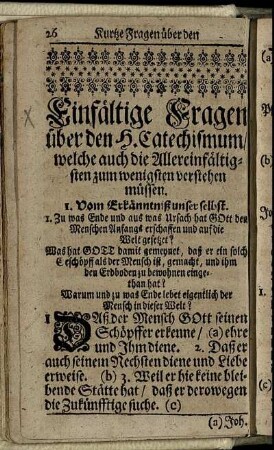 26 Kurtze Fragen über den
Einfältige Fragen
über den H. Catechismum/
welche auch die Allereinfältig-
sten zum wenigsten verstehen
müssen.
1. Vom Erkänntniß unser selbst.
1. Zu was Ende und aus was Ursach hat GOtt den
Menschen Anfangs erschaffen und auf die
Welt gesetzet?
Was hat GOTT damit gemeynet, daß er ein solch
Geschöpf als der Mensch ist, gemacht, und ihm
den Erdboden zu bewohnen einge-
than hat?
Warum und zu was Ende lebet eigentlich der
Mensch in dieser Welt?
1 DAß der Mensch GOtt seinen
Schöpffer erkenne/ (a) ehre
und Ihm diene. 2. Daß er
auch seinem Nechsten diene und Liebe
erweise. (b) 3. Weil er hie keine blei-
bende Stätte hat/ daß er derowegen
die Zukünfftige suche. (c)
(a) Joh.